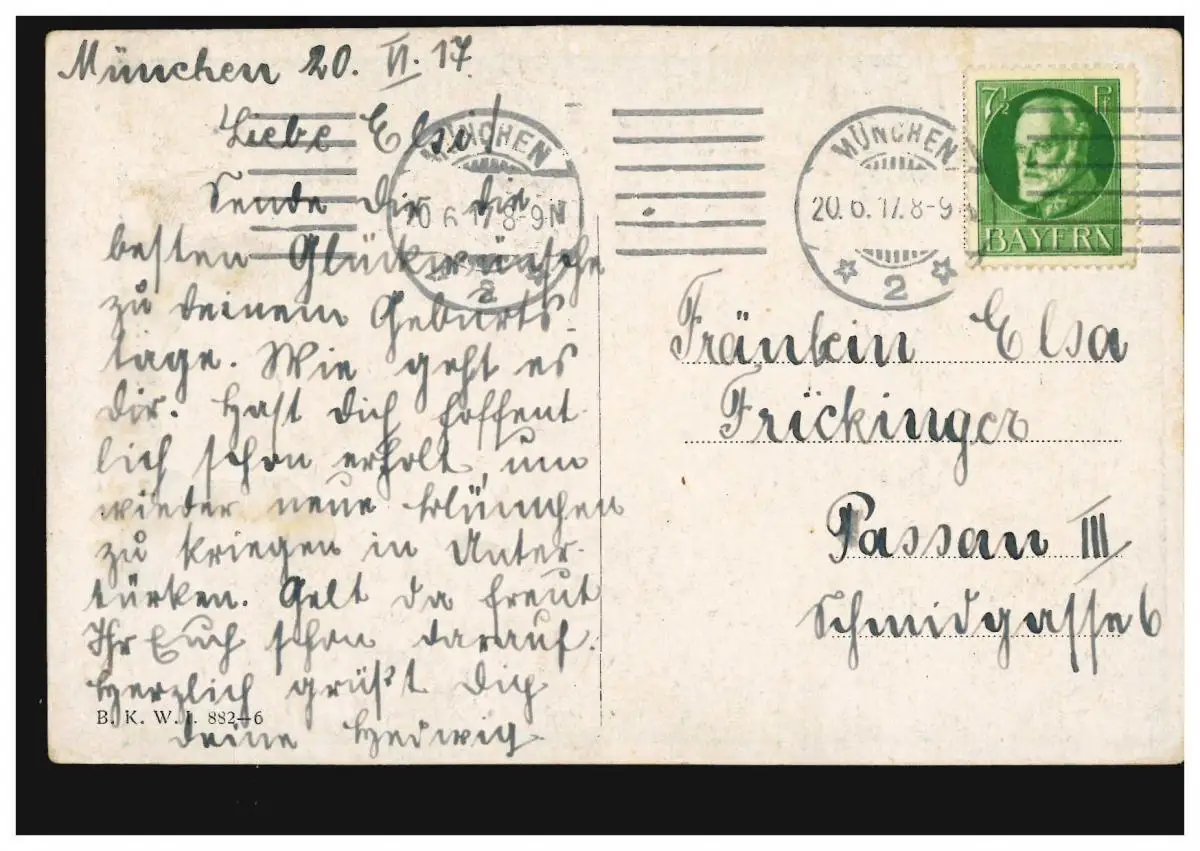 München 20. VI. 17.
Liebe Else!
Sende Dir die
besten Glückwünsche
zu deinem Geburts-
tage. Wie geht es
Dir. Hast Dich hoffent-
lich schon erholt, um
wieder neue
zu kriegen in Unter-
türken. Gelt da freut
Ihr Euch schon darauf.
Herzlich grüßt Dich
deine Hedwig
B. K. W. I. 882–6
MÜNCHEN
20.6.17.8-9N
2
MÜNCHEN
20.6.17.8-9N
2
7½ Pf
BAYERN
Fräulein Elsa
Frickinger
Passau III
Schmidgasse 6